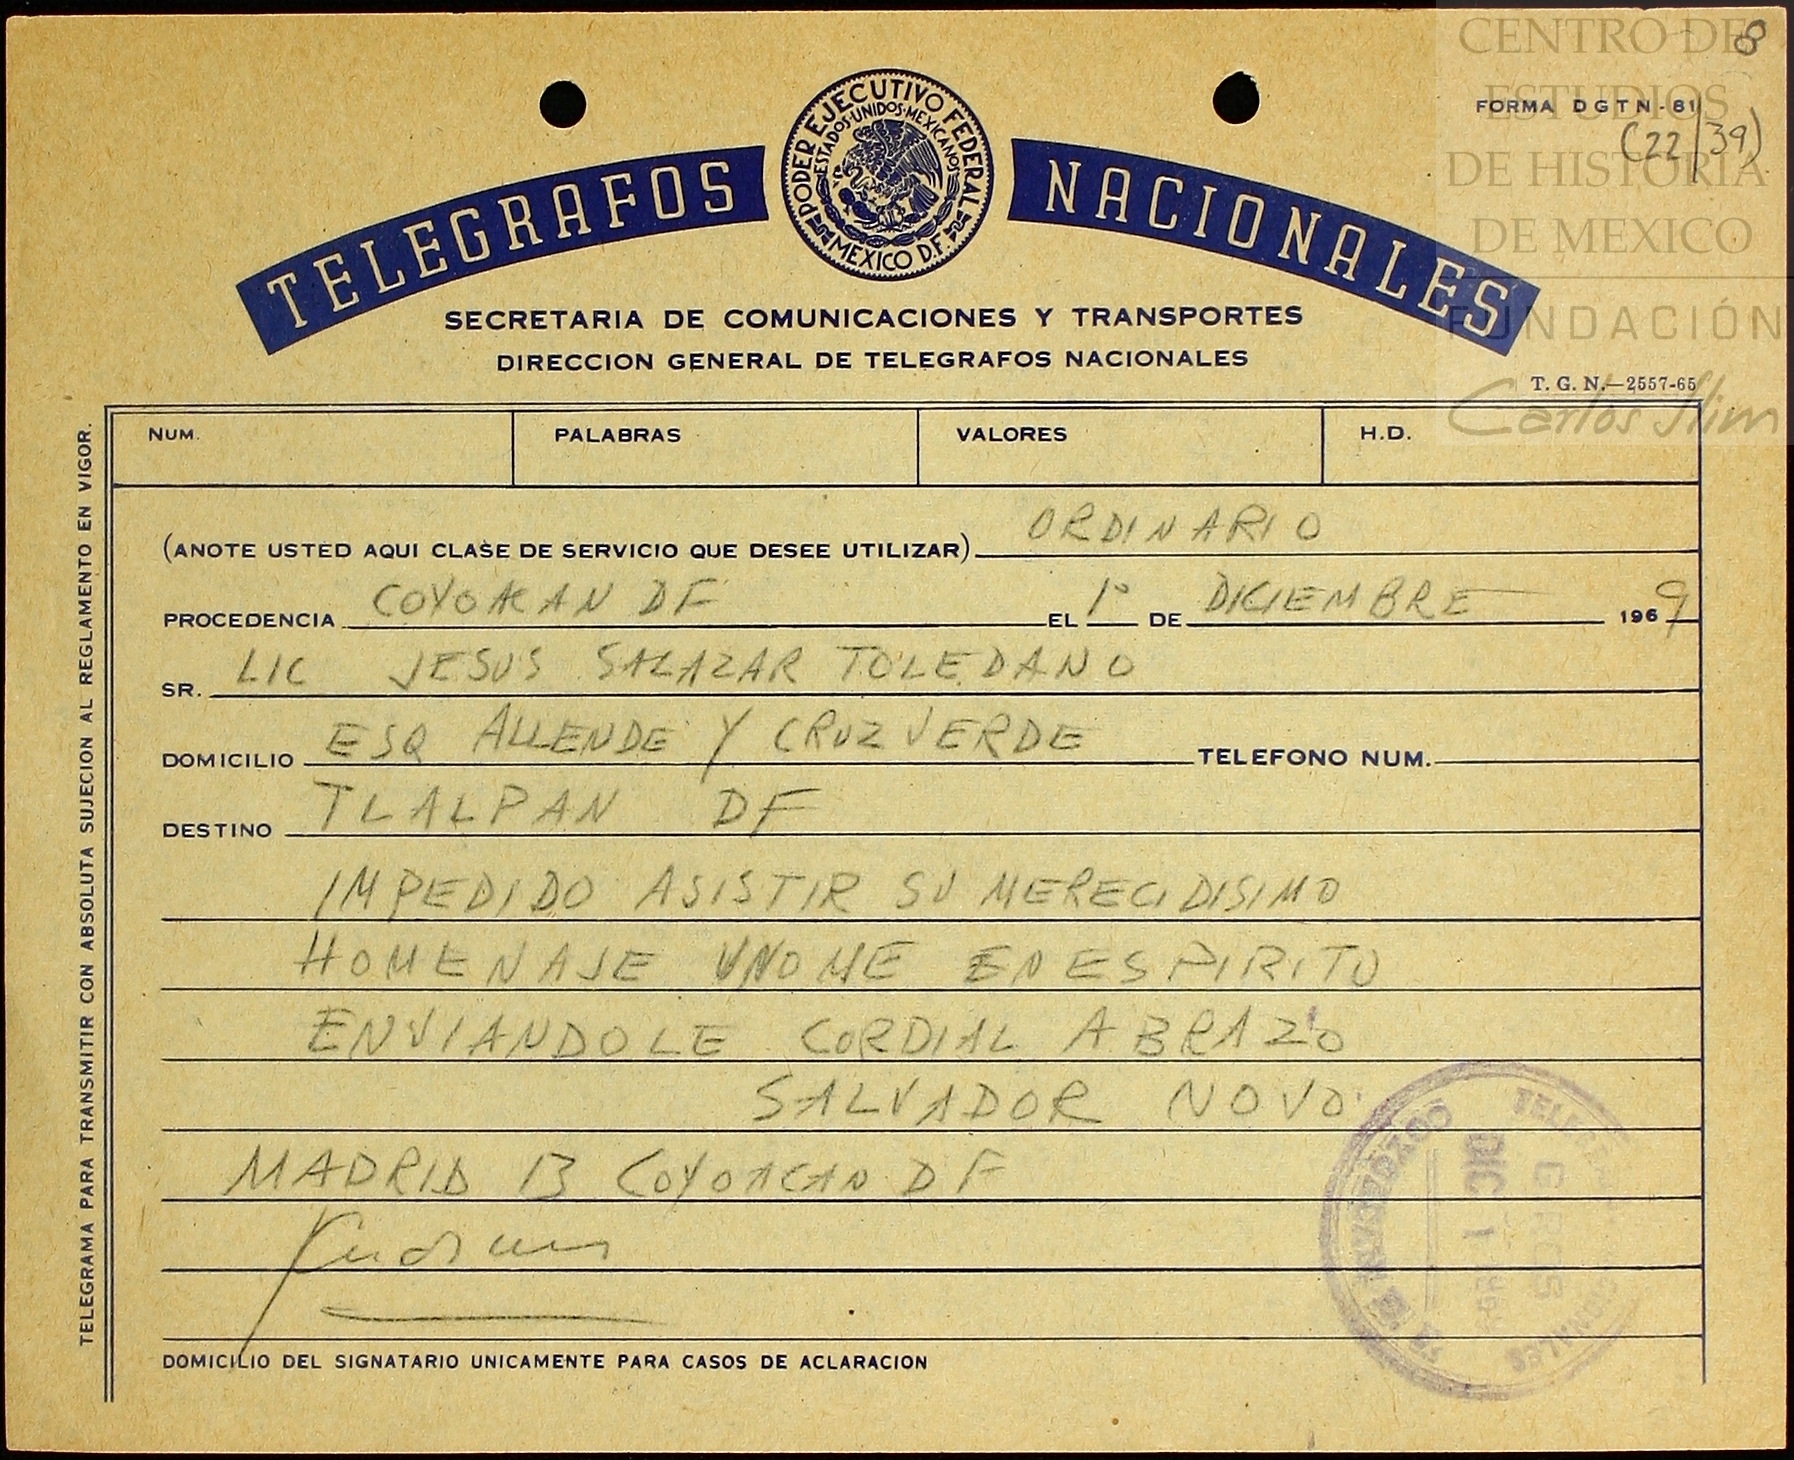 CENTRO DE
ESTUDIOS
DE HISTORIA
DE MEXICO
FUNDACIÓN
Carlos Slim
8
FORMA DGTN-81
(22/39)
TELEGRAFOS NACIONALES
PODER EJECUTIVO FEDERAL
ESTADOS UNIDOS MEXICANOS
MEXICO D.F.
SECRETARIA DE COMUNICACIONES Y TRANSPORTES
DIRECCION GENERAL DE TELEGRAFOS NACIONALES
T. G. N.—2557-65
NUM. PALABRAS VALORES H.D.
(ANOTE USTED AQUI CLASE DE SERVICIO QUE DESEE UTILIZAR) ORDINARIO
PROCEDENCIA COYOACAN DF EL 1° DE DICIEMBRE 1969
SR. LIC JESUS SALAZAR TOLEDANO
DOMICILIO ESQ ALLENDE Y CRUZ VERDE TELEFONO NUM.
DESTINO TLALPAN DF
IMPEDIDO ASISTIR SU MERECIDISIMO
HOMENAJE UNOME EN ESPIRITU
ENVIANDOLE CORDIAL ABRAZO
SALVADOR NOVO
MADRID 13 COYOACAN DF
DOMICILIO DEL SIGNATARIO UNICAMENTE PARA CASOS DE ACLARACION
TELEGRAMA PARA TRANSMITIR CON ABSOLUTA SUJECION AL REGLAMENTO EN VIGOR.
GROS
DIC 1